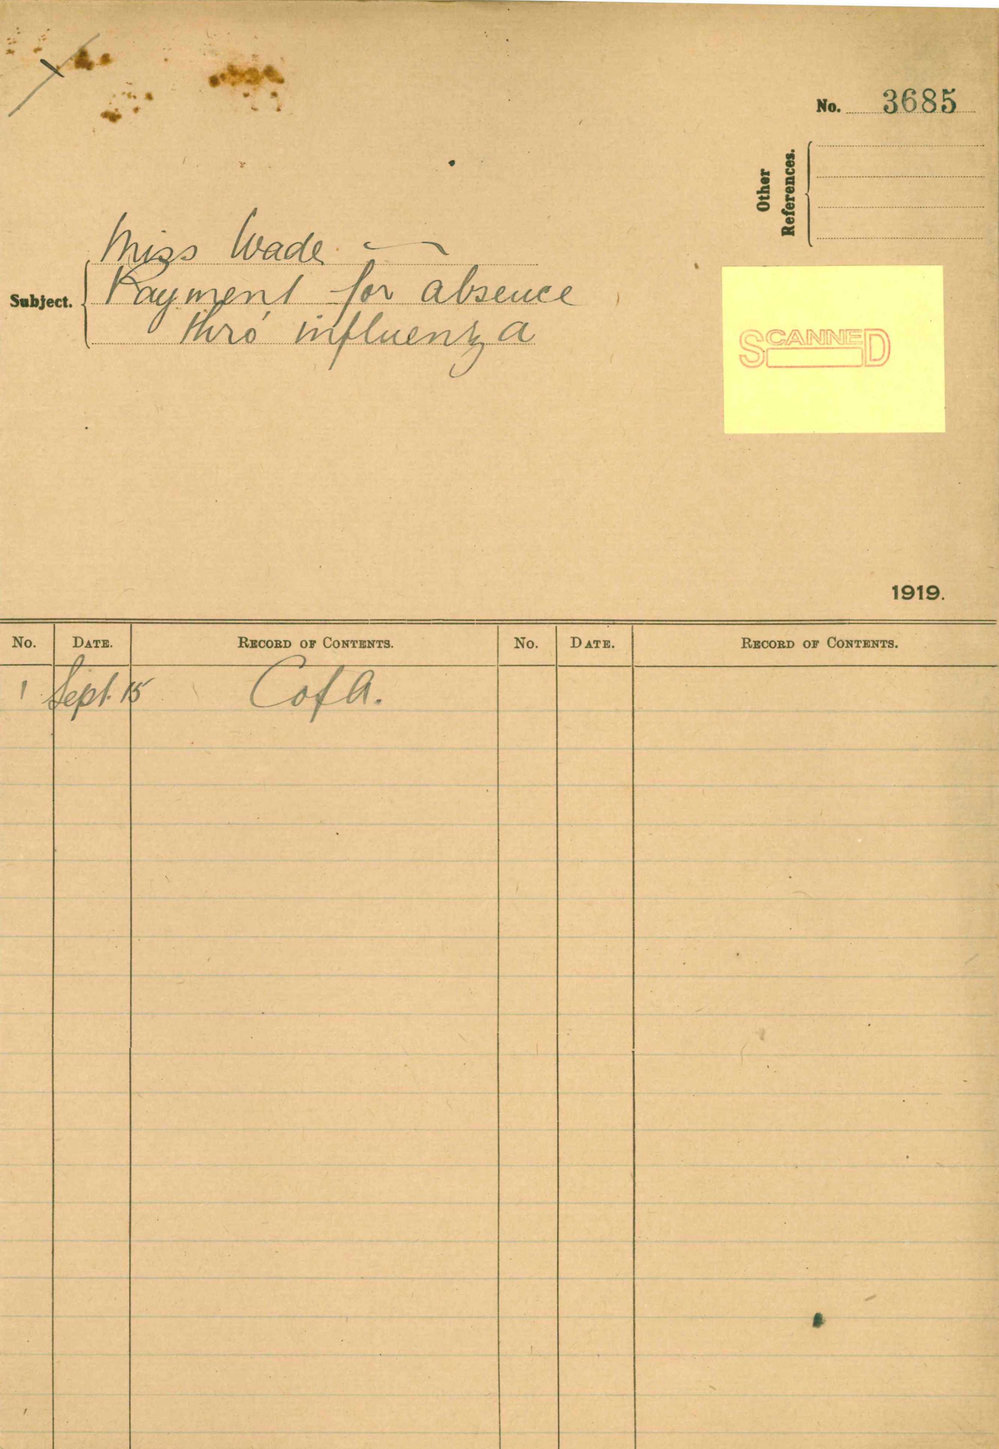 No. 3685
Other
References.
Miss Wade
Subject.
Payment for absence
thro' influenza
SCANNED
1919.
No. DATE. RECORD OF CONTENTS. No. DATE. RECORD OF CONTENTS.
1 Sept. 15 C of A.